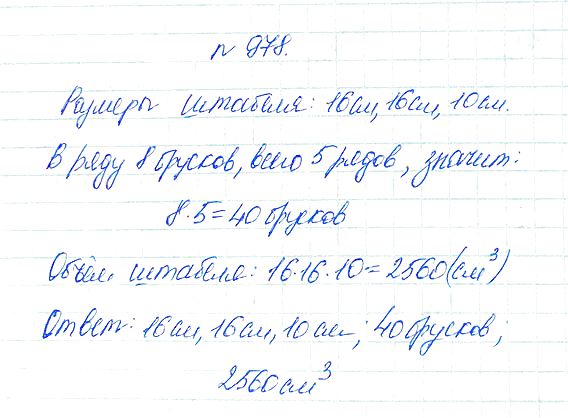 n 978.
Размеры штабеля: 16см, 16см, 10см.
В ряду 8 брусков, всего 5 рядов, значит:
8·5=40 брусков
Объём штабеля: 16·16·10=2560(см³)
Ответ: 16см, 16см, 10см; 40 брусков;
2560см³